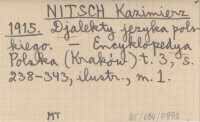 NITSCH Kazimierz
1915. Djalekty języka pols-
kiego. — Encyklopedya
Polska (Kraków) t. 3, s.
238-343, ilustr., m. 1.
MT